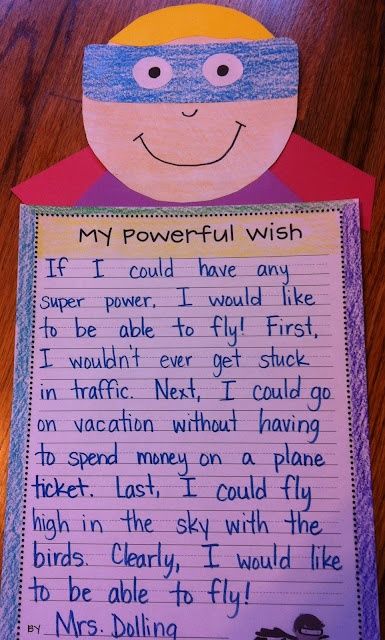 My Powerful Wish
If I could have any
super power, I would like
to be able to fly! First,
I wouldn't ever get stuck
in traffic. Next, I could go
on vacation without having
to spend money on a plane
ticket. Last, I could fly
high in the sky with the
birds. Clearly, I would like
to be able to fly!
BY Mrs. Dolling